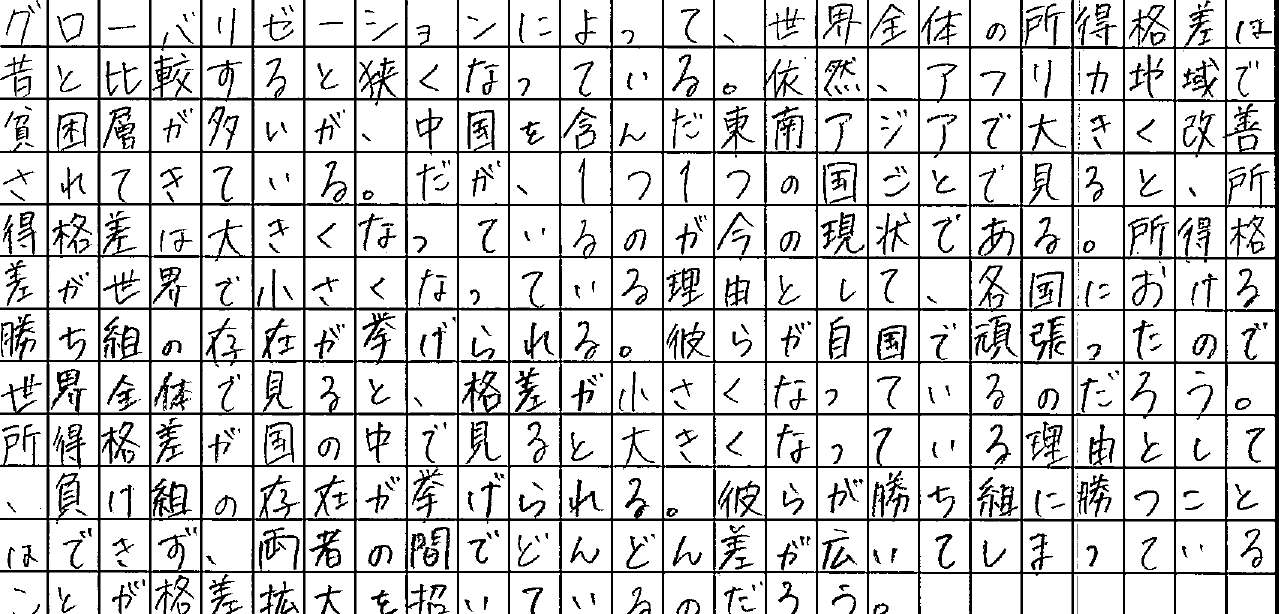 グローバリゼーションによって、世界全体の所得格差は
昔と比較すると狭くなっている。依然、アフリカ地域で
貧困層が多いが、中国を含んだ東南アジアで大きく改善
されてきている。だが、1つ1つの国ごとで見ると、所
得格差は大きくなっているのが今の現状である。所得格
差が世界で小さくなっている理由として、各国における
勝ち組の存在が挙げられる。彼らが自国で頑張ったので
世界全体で見ると、格差が小さくなっているのだろう。
所得格差が国の中で見ると大きくなっている理由として
、負け組の存在が挙げられる。彼らが勝ち組に勝つこと
はできず、両者の間でどんどん差が広いてしまっている
ことが格差拡大を招いているのだろう。